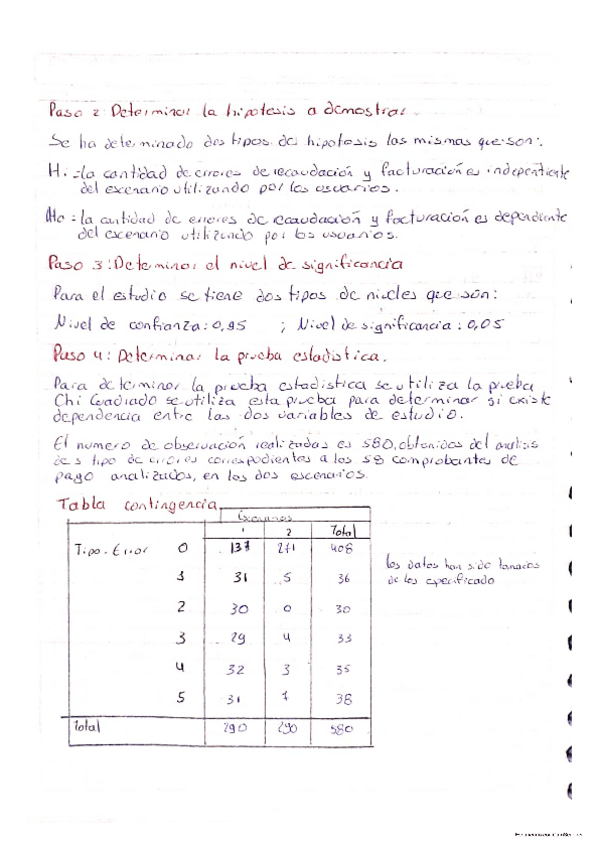 Paso 2: Determinar la hipotesis a demostrar.
Se ha determinado dos tipos de hipotesis las mismas que son:
Hi = la cantidad de errores de recaudación y facturación es independiente
del escenario utilizando por los usuarios.
Ho = la cantidad de errores de recaudación y facturación es dependiente
del escenario utilizando por los usuarios.
Paso 3: Determinar el nivel de significancia
Para el estudio se tiene dos tipos de niveles que son:
Nivel de confianza: 0,95 ; Nivel de significancia: 0,05
Paso 4: Determinar la prueba estadistica.
Para determinar la prueba estadistica se utiliza la prueba
Chi Cuadrado se utiliza esta prueba para determinar si existe
dependencia entre las dos variables de estudio.
El numero de observación realizadas es 580, obtenidos del analisis
de 5 tipo de errores correspodientes a los 58 comprobantes de
pago analizados, en los dos escenarios.
Tabla contingencia
Escenarios
1 2 Total
Tipo. Error 0 137 271 408
1 31 5 36
2 30 0 30
3 29 4 33
4 32 3 35
5 31 7 38
Total 290 290 580
los datos han sido tomados
de los especificado